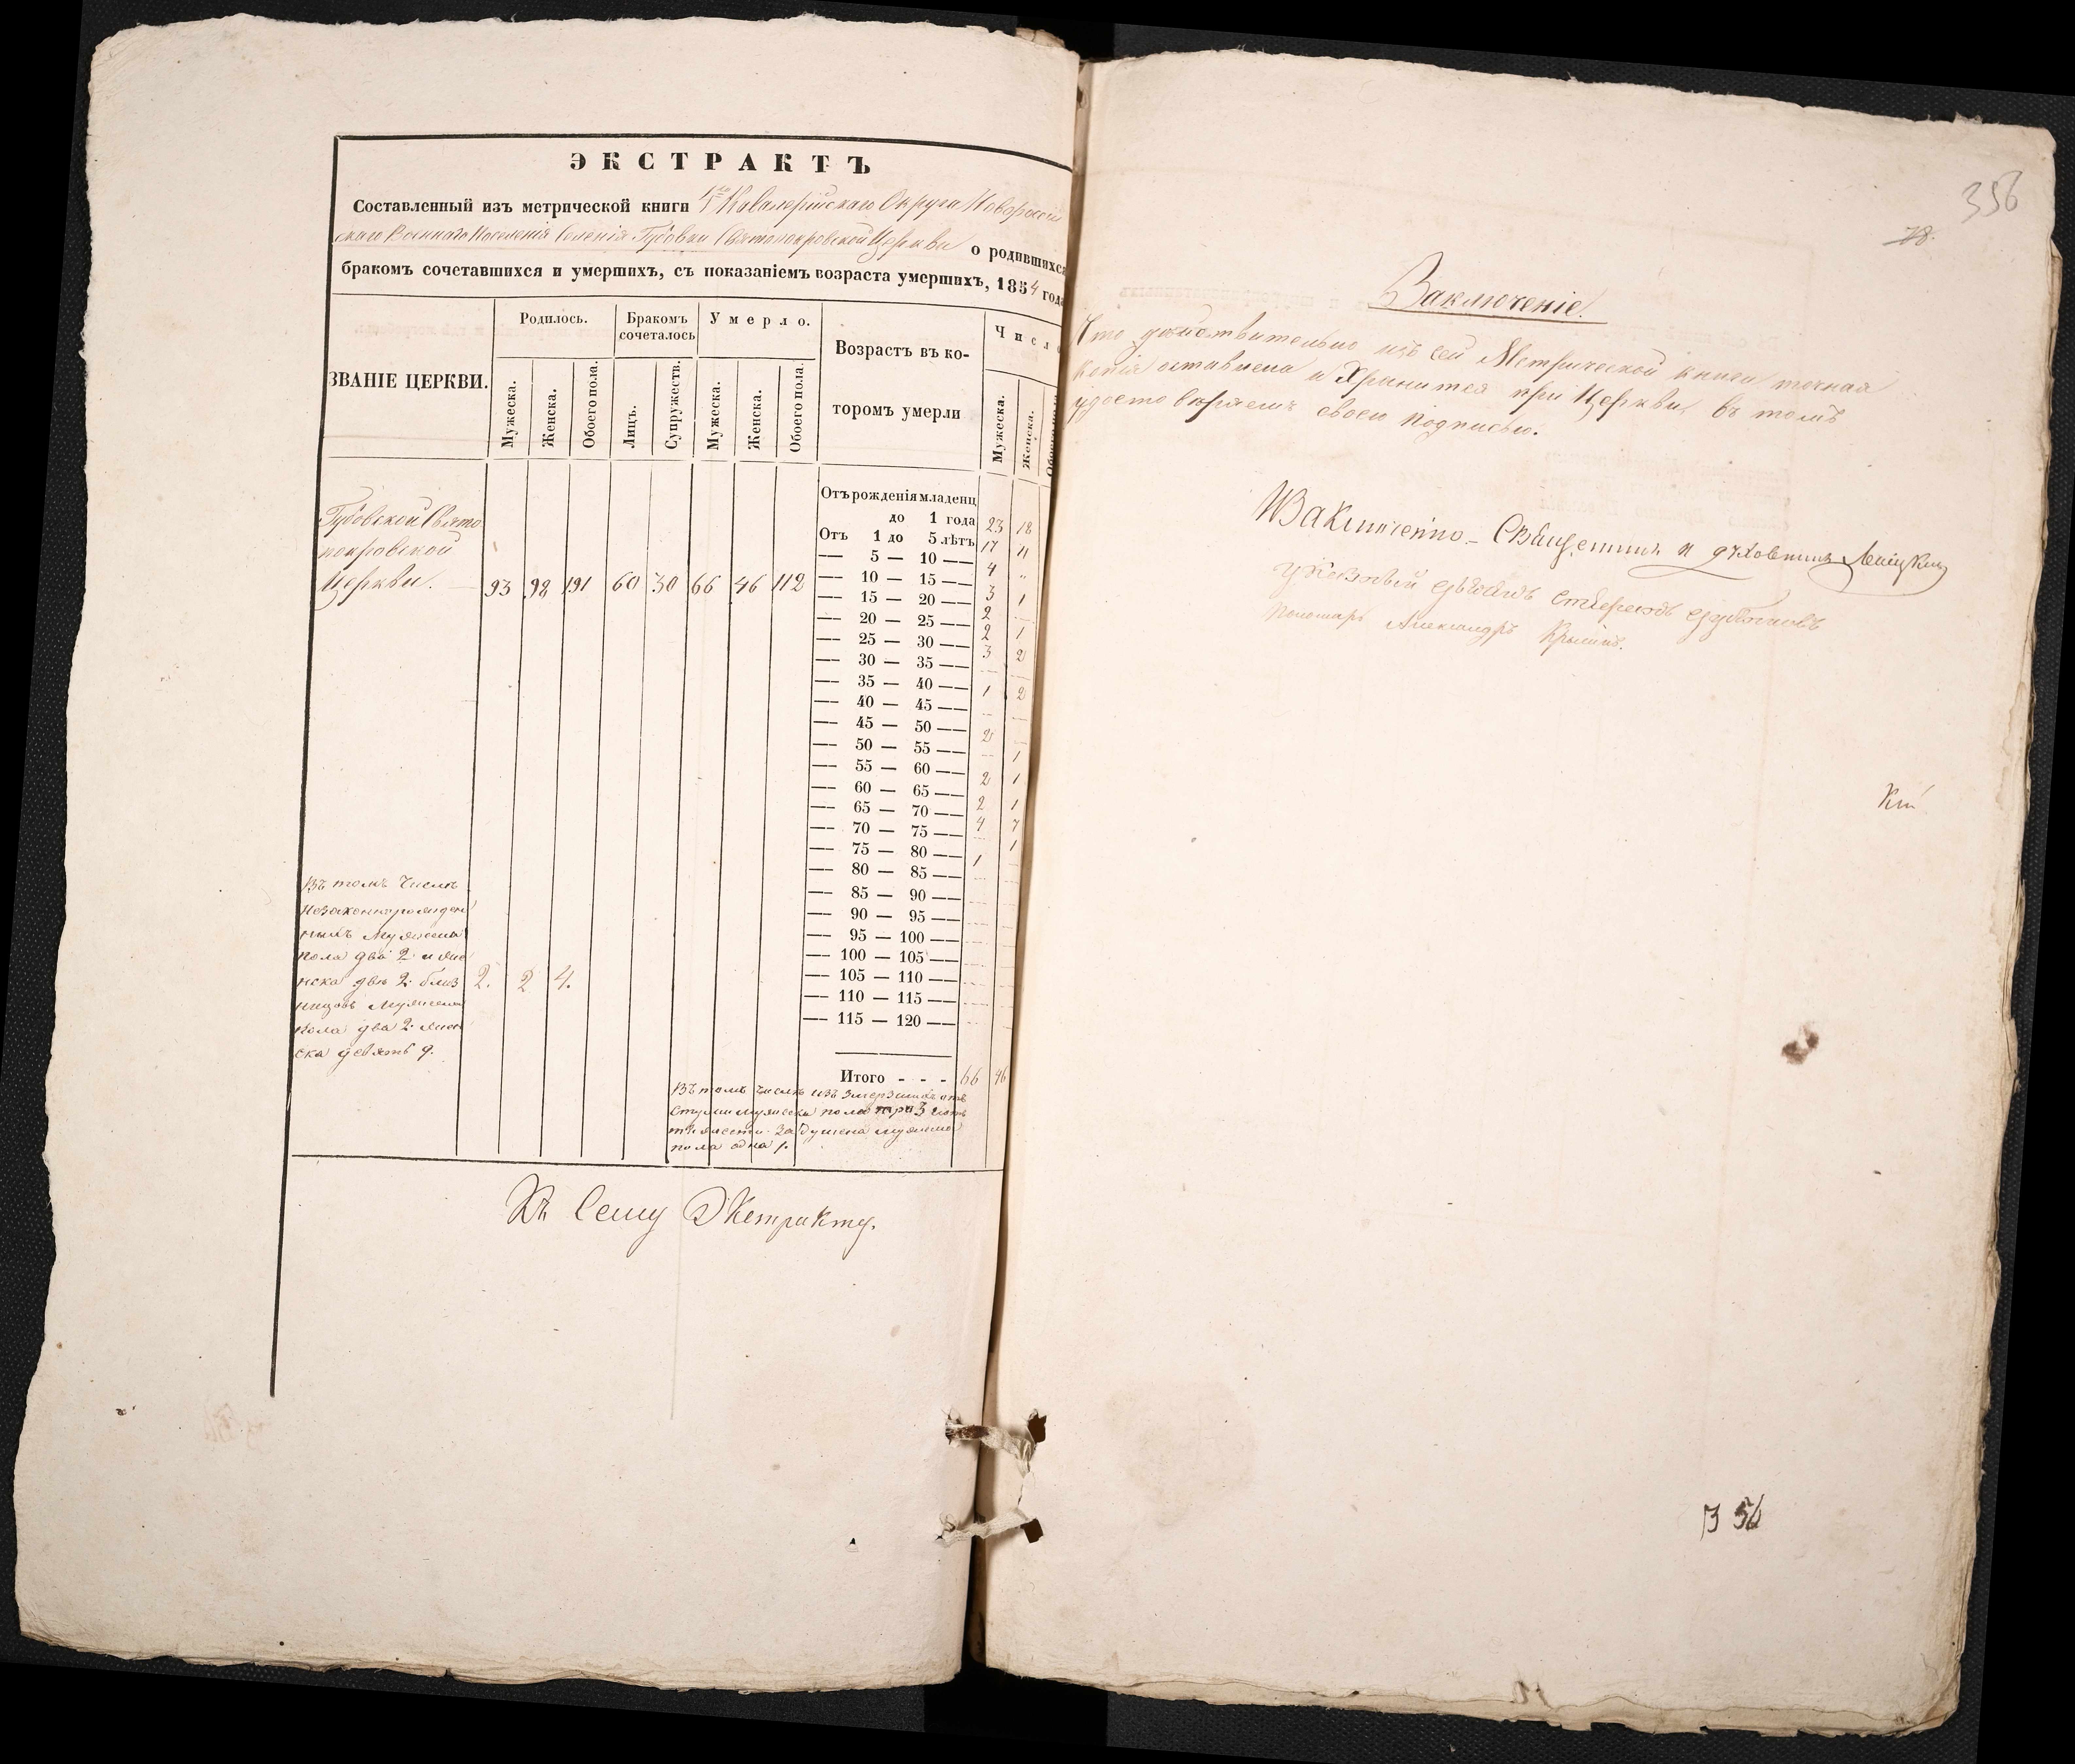 ЭКСТРАКТЪ
Составленный изъ метрической книги 1го Кавалерійскаго Округа Новоросій
скаго Военнаго Поселенія Селенія Губовки Святопокровской Церкви о родившихся
бракомъ сочетавшихся и умершихъ, съ показаніемъ возраста умершихъ, 1854 года
ЗВАНІЕ ЦЕРКВИ.
Родилось.
Бракомъ
сочеталось
Умерло.
Возрастъ въ ко-
торомъ умерли
Число
Мужеска.
Женска.
Обоего пола.
Лицъ.
Супружеств.
Мужеска.
Женска.
Обоего пола.
Мужеска.
Женска.
Губовской Свято
покровской
Церкви. 93 98 191 60 30 66 46 112
Отъ рожденія младенц
до 1 года 23 18
Отъ 1 до 5 лѣтъ 17 11
— 5 — 10 — 4 "
— 10 — 15 — 3 1
— 15 — 20 — 2 —
— 20 — 25 — 2 1
— 25 — 30 — 3 2
— 30 — 35 — — —
— 35 — 40 — 1 2
— 40 — 45 — — —
— 45 — 50 — 2 —
— 50 — 55 — — 1
— 55 — 60 — 2 1
— 60 — 65 — 2 1
— 65 — 70 — 4 7
— 70 — 75 — — 1
— 75 — 80 — 1 —
— 80 — 85 —
— 85 — 90 —
— 90 — 95 —
— 95 — 100 —
— 100 — 105 —
— 105 — 110 —
— 110 — 115 —
— 115 — 120 —
Итого - - - 66 46
Въ томъ числѣ
незаконнорожден
ныхъ мужеска
пола два 2 и жен
нска двѣ 2. близ 2. 2 4.
нецовъ мужеска
пола два 2. жен
ска девять 9.
Въ томъ числѣ изъ
мужеска пола три 3
задушена мужеска
пола одна 1.
Къ Сему Экстракту.
356
78.
Заключеніе.
Что действительно изъ сей Метрической книги точная
копія оставлена и Хранится при Церкви, въ томъ
удостовѣряемъ своею подписью.
Священникъ и духовникъ
Пономарь Александръ
356